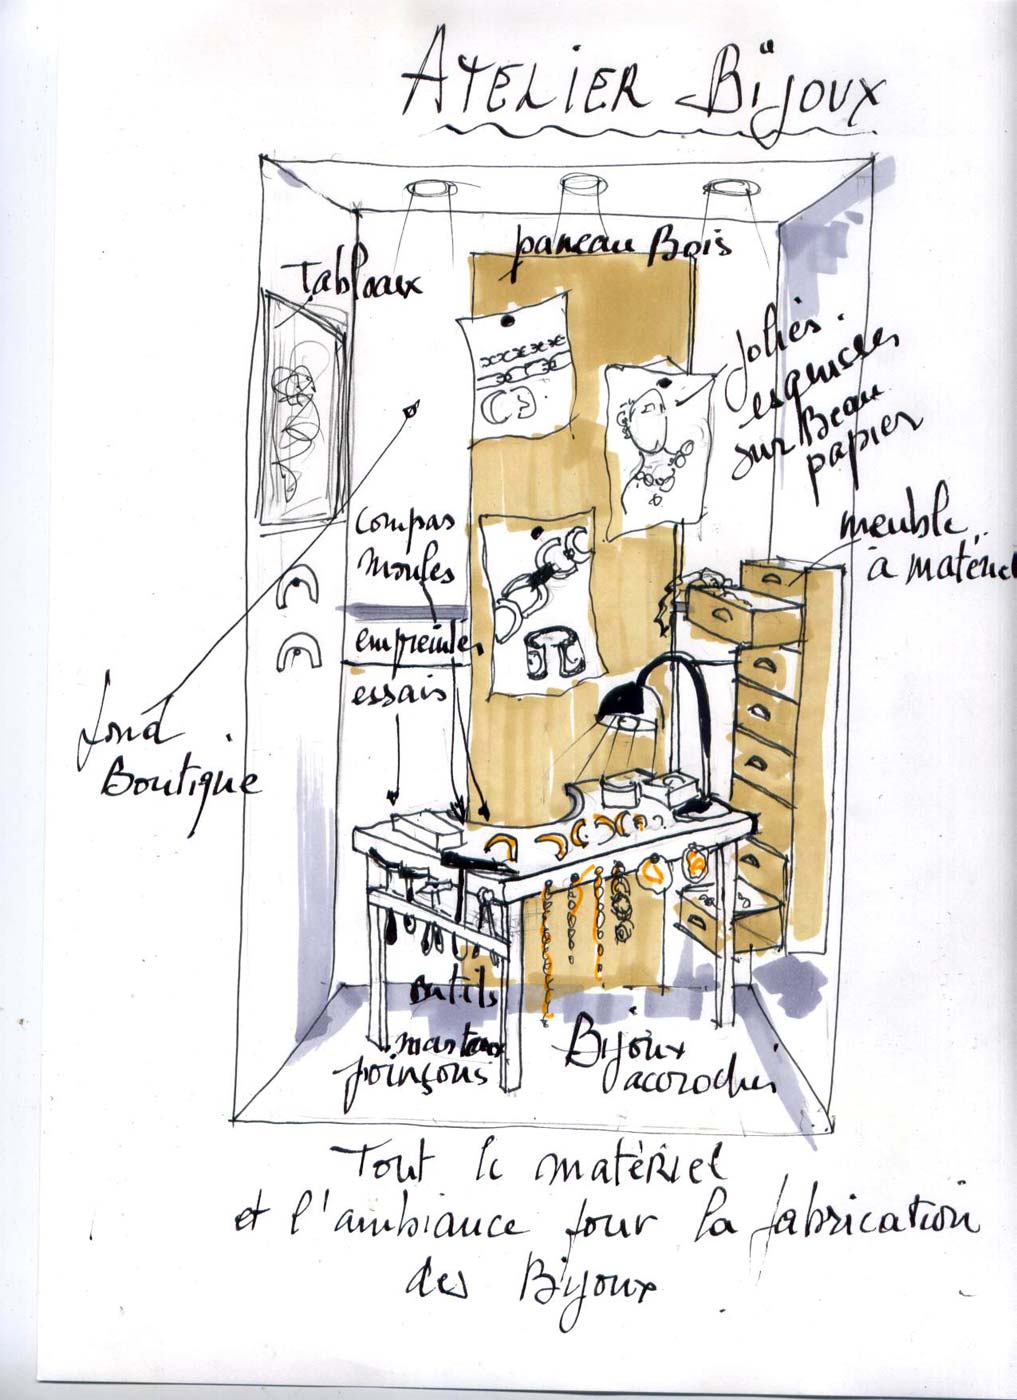 ATELIER Bijoux
paneau Bois
Tableaux
Jolies
esquisses
sur Beau
papier
meuble
à matériel
compas
moules
empreintes
essais
fond
Boutique
outils
marteaux
poinçons
Bijoux
accrochés
Tout le matériel
et l'ambiance pour la fabrication
des Bijoux